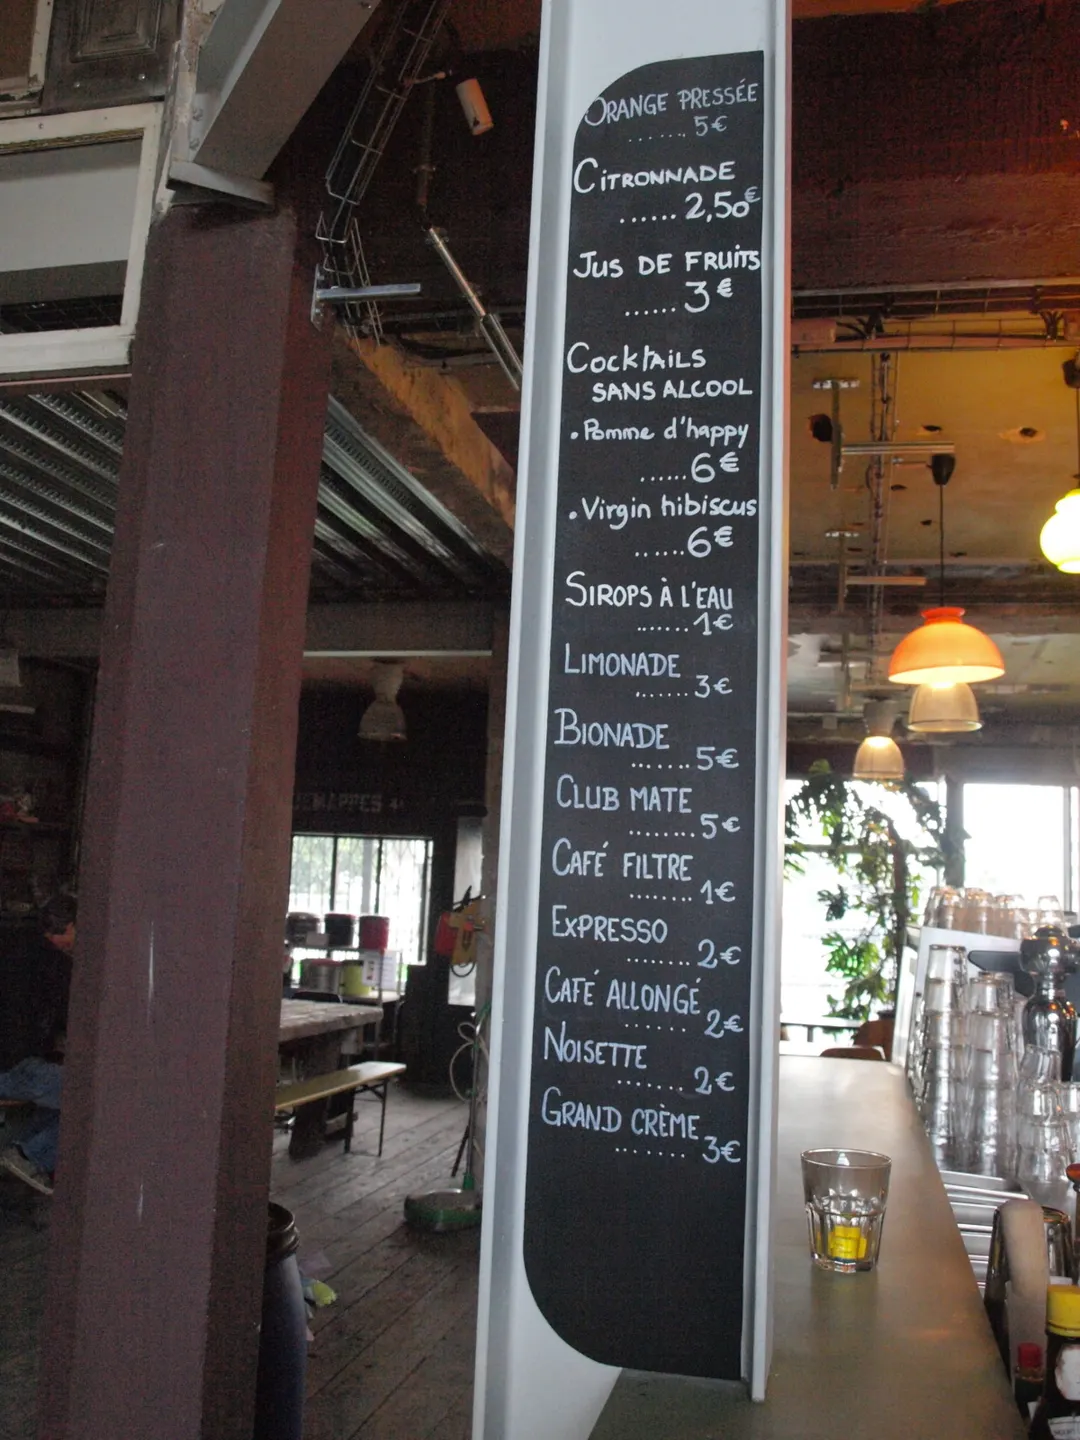 ORANGE PRESSÉE
...... 5€
CITRONNADE
...... 2,50€
JUS DE FRUITS
...... 3€
COCKTAILS
SANS ALCOOL
• Pomme d'happy
...... 6€
• Virgin hibiscus
...... 6€
SIROPS À L'EAU
....... 1€
LIMONADE
....... 3€
BIONADE
........ 5€
CLUB MATE
......... 5€
CAFÉ FILTRE
........ 1€
EXPRESSO
........ 2€
CAFÉ ALLONGÉ
....... 2€
NOISETTE
........ 2€
GRAND CRÈME
........ 3€